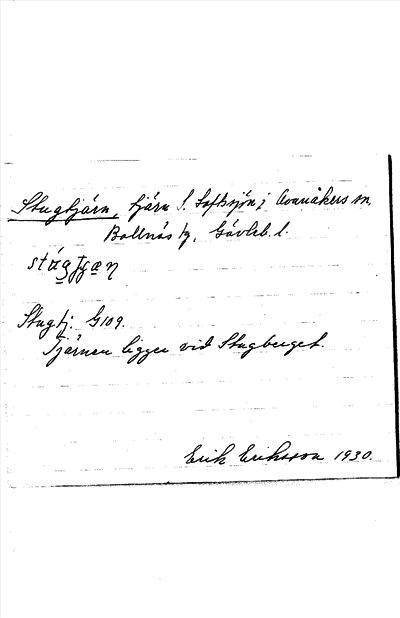 Stugtjärn, tjärn S. Lofssjön i Annåkers sn.
Bollnäs tg, Gävleb. l.
Stugtj. G109.
Tjärnen ligger vid Stugberget.
Erik Eriksson 1930.